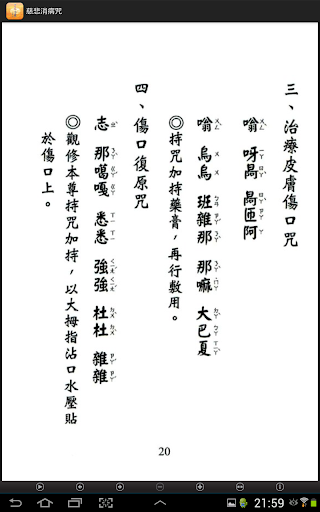 慈悲消病咒
三、治療皮膚傷口咒
嗡 呀曷 曷匝阿
嗡 烏烏 班雜那 那嘛 大巴夏
◎持咒加持藥膏，再行敷用。
四、傷口復原咒
志 那噶嘎 悉悉 強強 杜杜 雜雜
◎觀修本尊持咒加持，以大拇指沾口水壓貼
於傷口上。
20
21:59